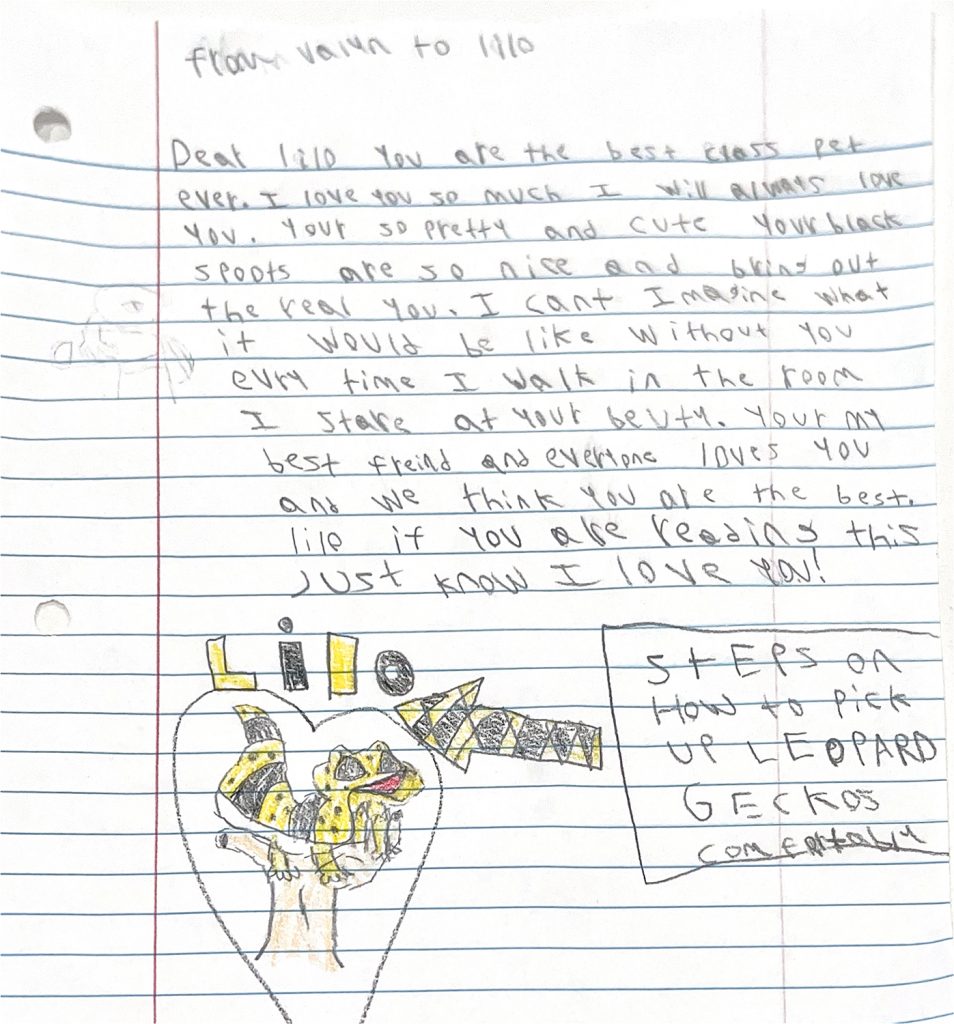 from to lilo
Dear lilo you are the best class pet
ever. I love you so much I will always love
you. Your so pretty and cute your black
spoots are so nice and bring out
the real you. I cant Imagine what
it would be like without you
evry time I walk in the room
I stare at your beuty. Your my
best freind and everyone loves you
and we think you are the best.
lilo if you are reading this
Just know I love you!
Lilo
STEPS on
How to pick
UP LEOPARD
GECKOS